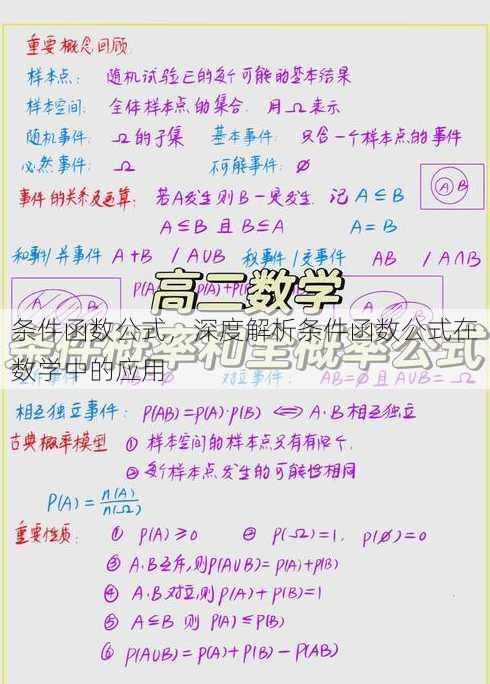 重要概念回顾
样本点: 随机试验E的每个可能的基本结果
样本空间: 全体样本点的集合. 用Ω表示
随机事件: Ω的子集 基本事件: 只含一个样本点的事件
必然事件: Ω 不可能事件: ∅
事件的关系及运算: 若A发生则B一定发生. 记A⊆B
A B
A⊆B 且 B⊆A A=B
和事件/并事件 A+B / A∪B 积事件/交事件 AB / A∩B
高二数学
条件概率和全概率公式
条件函数公式，深度解析条件函数公式在
数学中的应用
对立事件: AB=∅且A∪B=Ω
相互独立事件: P(AB)=P(A)·P(B) ⟺ A·B相互独立
古典概率模型 ① 样本空间的样本点只有有限个.
② 每个样本点发生的可能性相同
P(A)=n(A)/n(Ω)
重要性质: ① P(A)≥0 ② P(Ω)=1. P(∅)=0
③ A·B互斥,则P(A∪B)=P(A)+P(B)
④ A·B对立,则P(A)+P(B)=1
⑤ A⊆B 则 P(A)≤P(B)
⑥ P(A∪B)=P(A)+P(B)-P(AB)